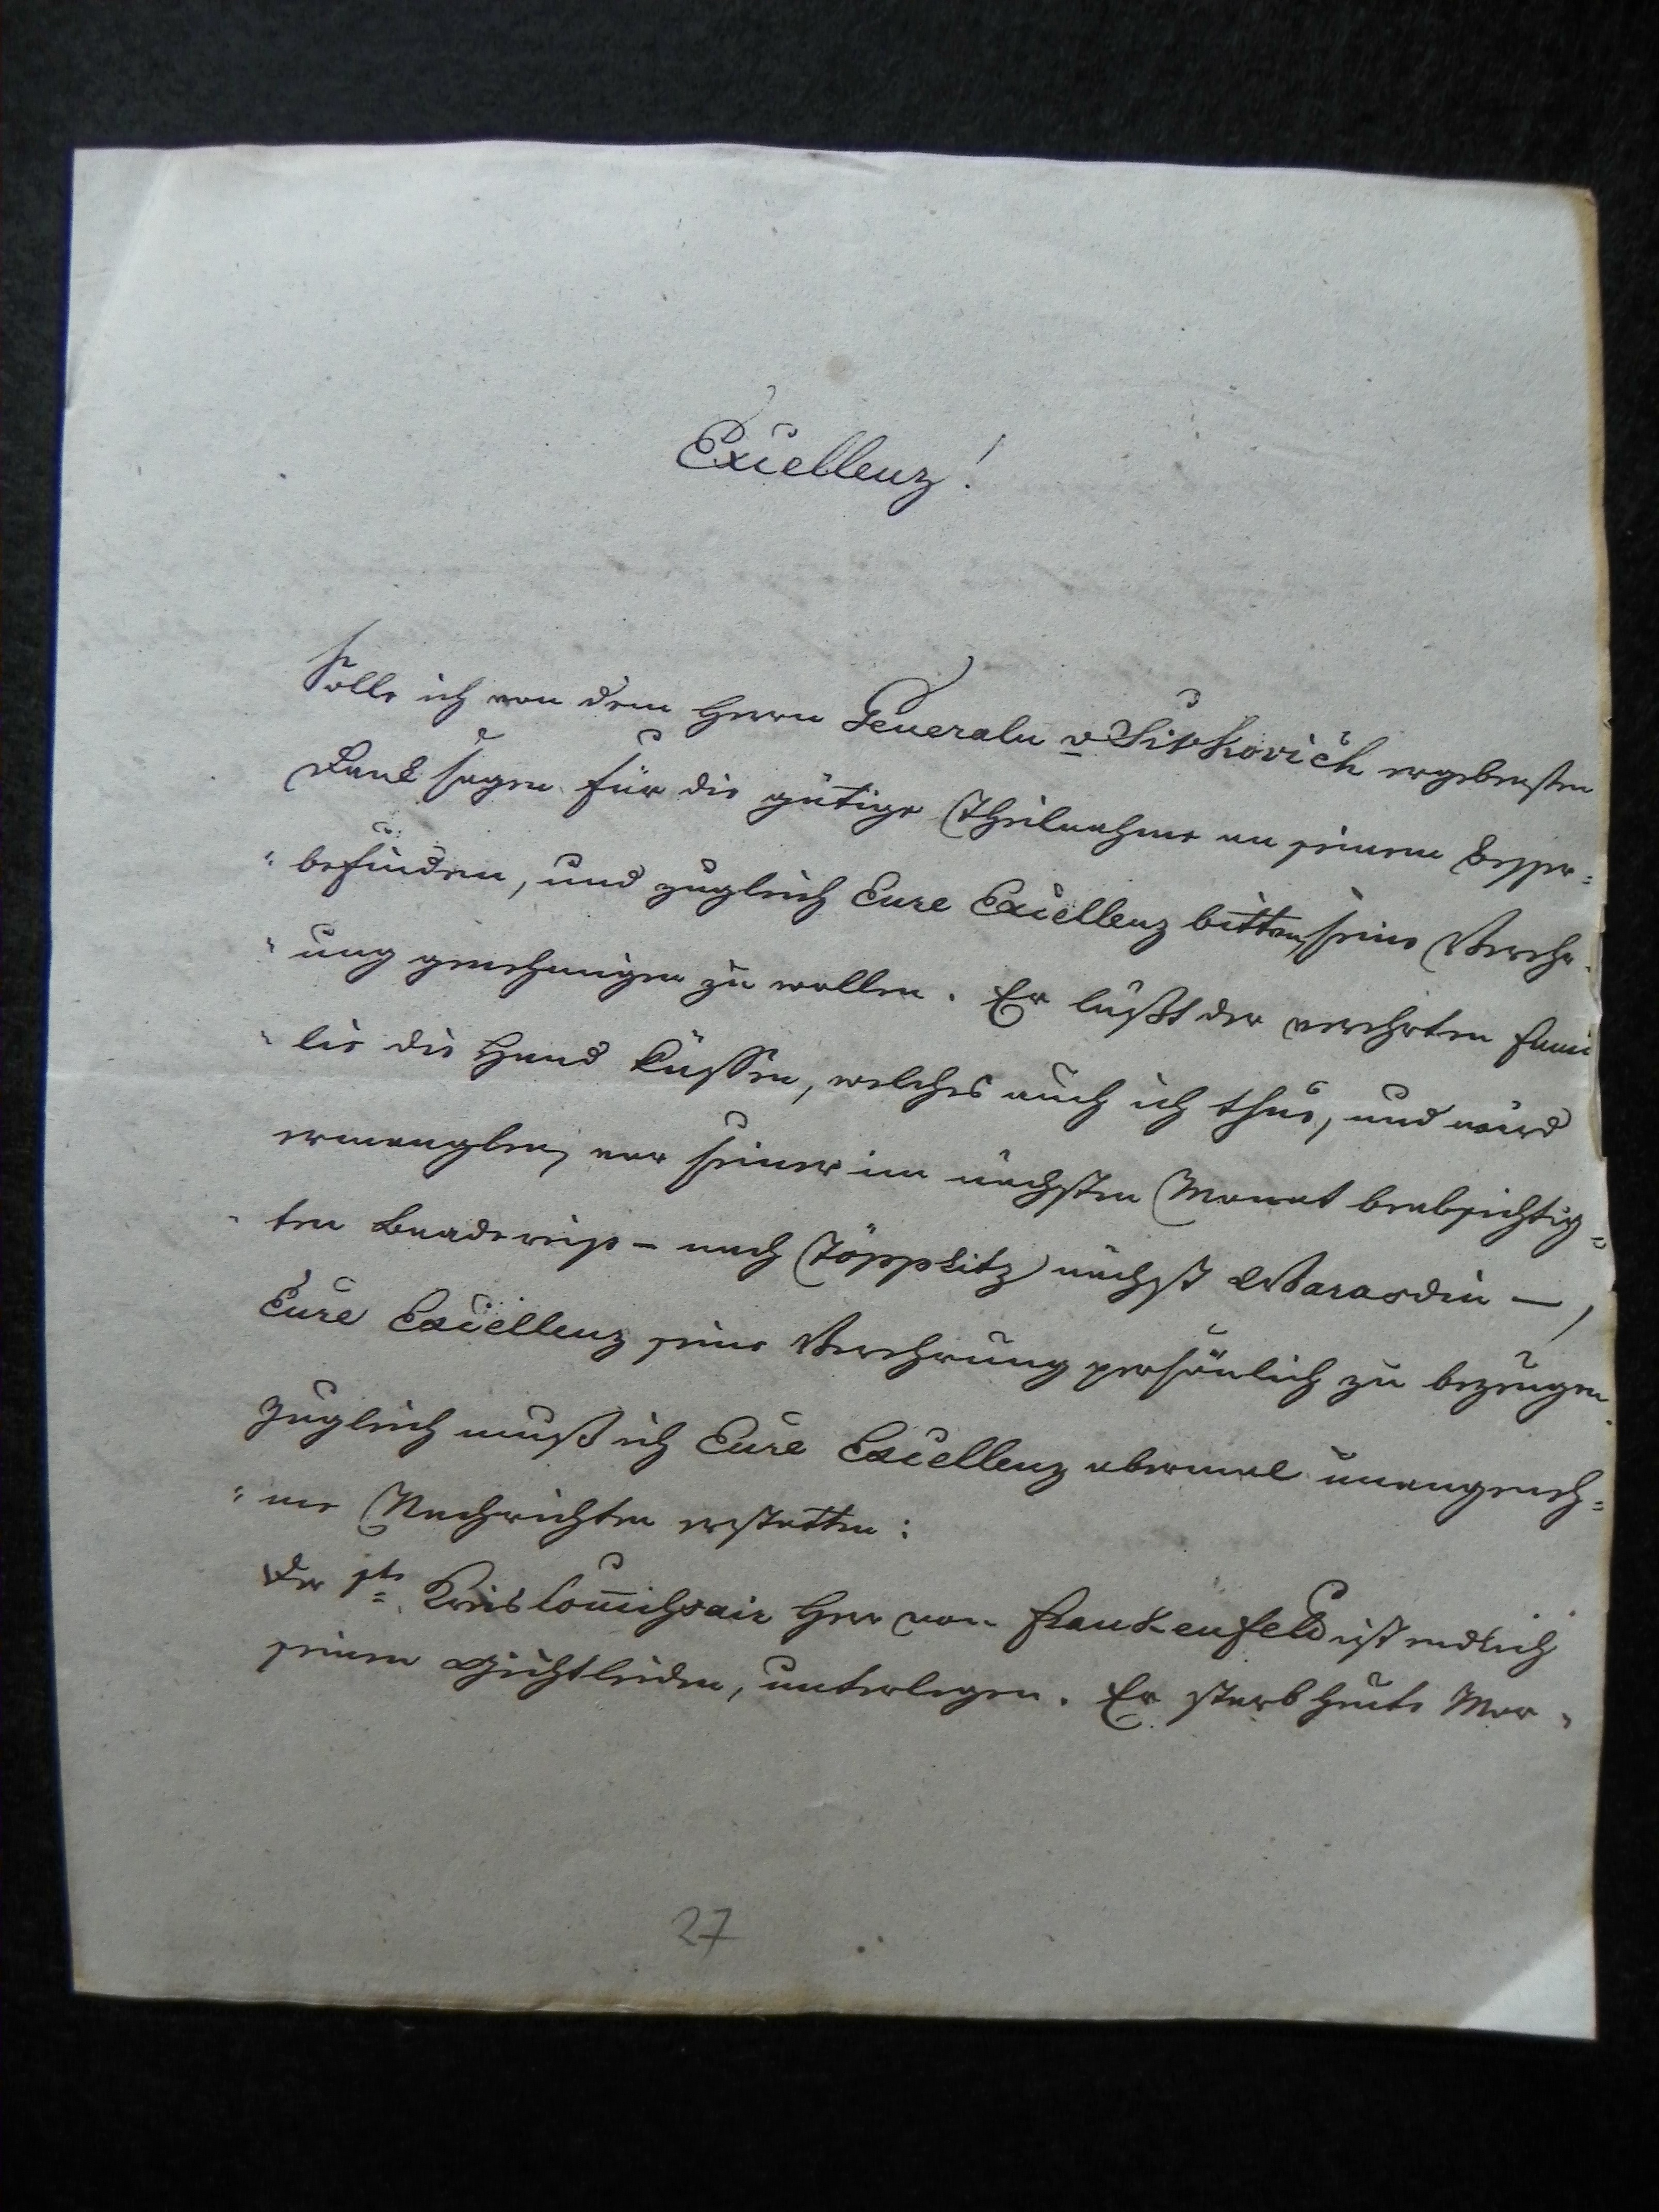 Excellenz!
Solle ich von dem Herrn Generalen v. Sivkovich ergebensten
Dank sagen für die gütige Theilnahme an seinem besser-
"befinden, und zugleich Eure Excellenz bitten, seine Verehr-
"ung genehmigen zu wollen. Er läßt der verehrten Fami
"lie die Hand küssen, welches auch ich thue, und wird
ermanglen, vor seiner im nächsten Monat beabsichtig-
"ten Baadereise – nach Töpplitz nächst Warasdin –,
Eure Excellenz seine Verehrung persönlich zu bezeugen.
Zugleich muß ich Eure Excellenz abermal unangeneh-
"me Nachrichten erstatten:
Der 1te Kreis Herr von Frankenfeld ist endlich
seinen Gichtleiden, unterlegen. Er starb heute Mor-
27